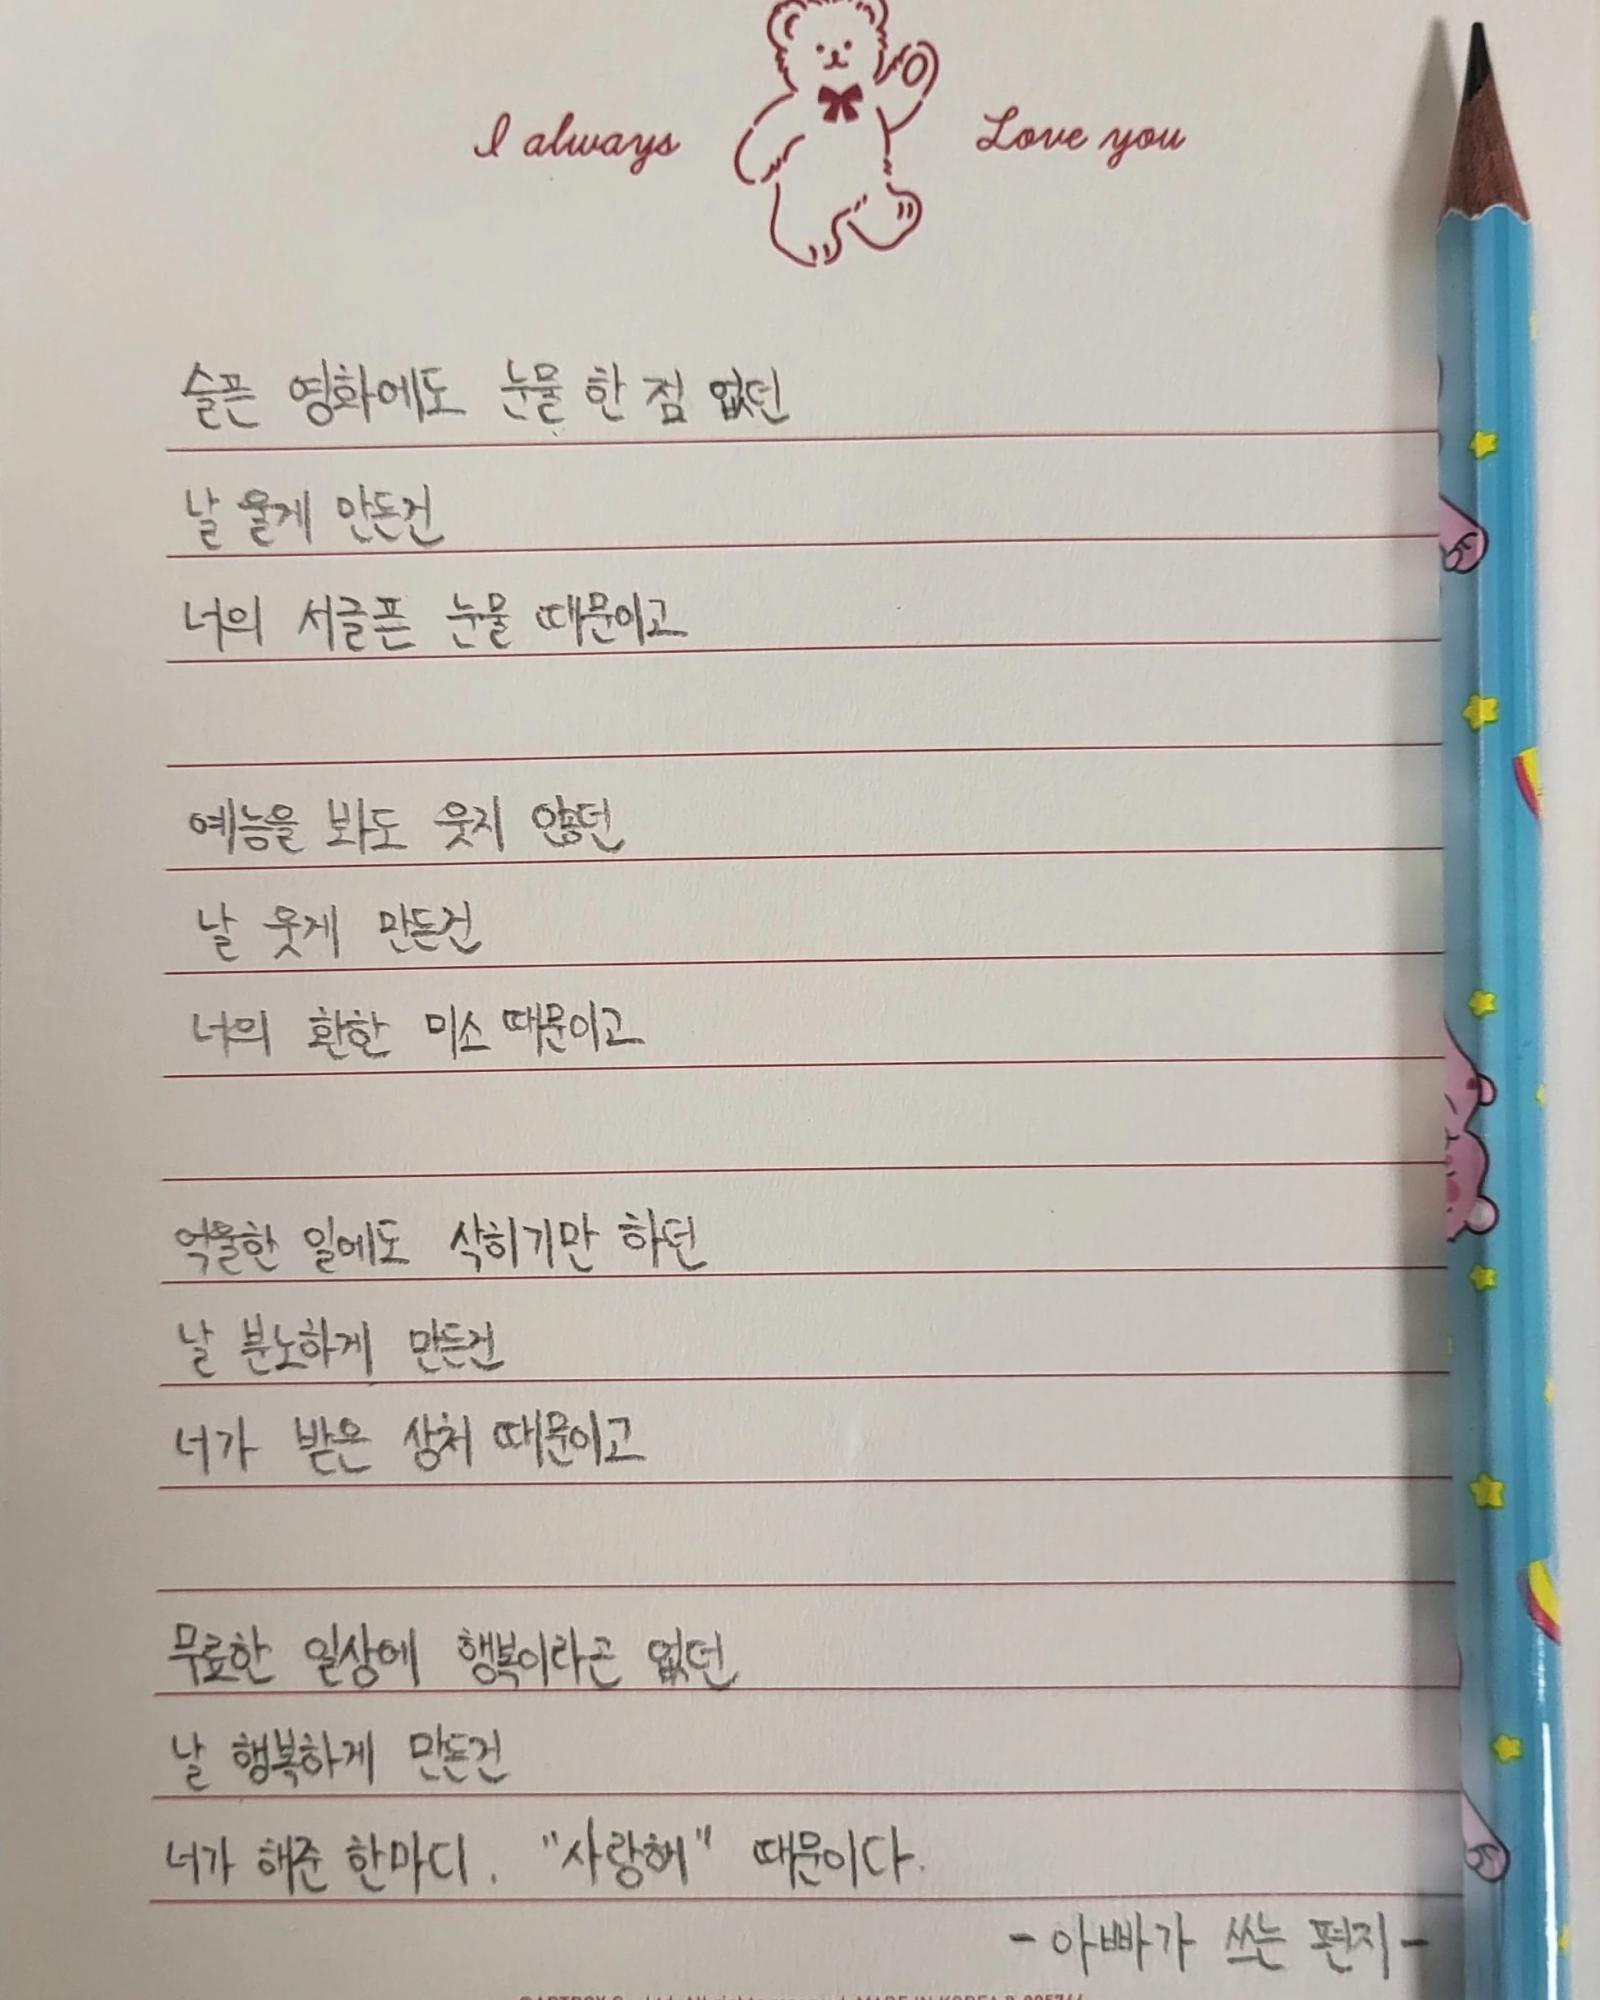 I always Love you
슬픈 영화에도 눈물 한 점 없던
날 울게 만든건
너의 서글픈 눈물 때문이고
예능을 봐도 웃지 않던
날 웃게 만든건
너의 환한 미소 때문이고
억울한 일에도 삭히기만 하던
날 분노하게 만든건
너가 받은 상처 때문이고
무료한 일상에 행복이라곤 없던
날 행복하게 만든건
너가 해준 한마디. "사랑해" 때문이다.
- 아빠가 쓰는 편지 -